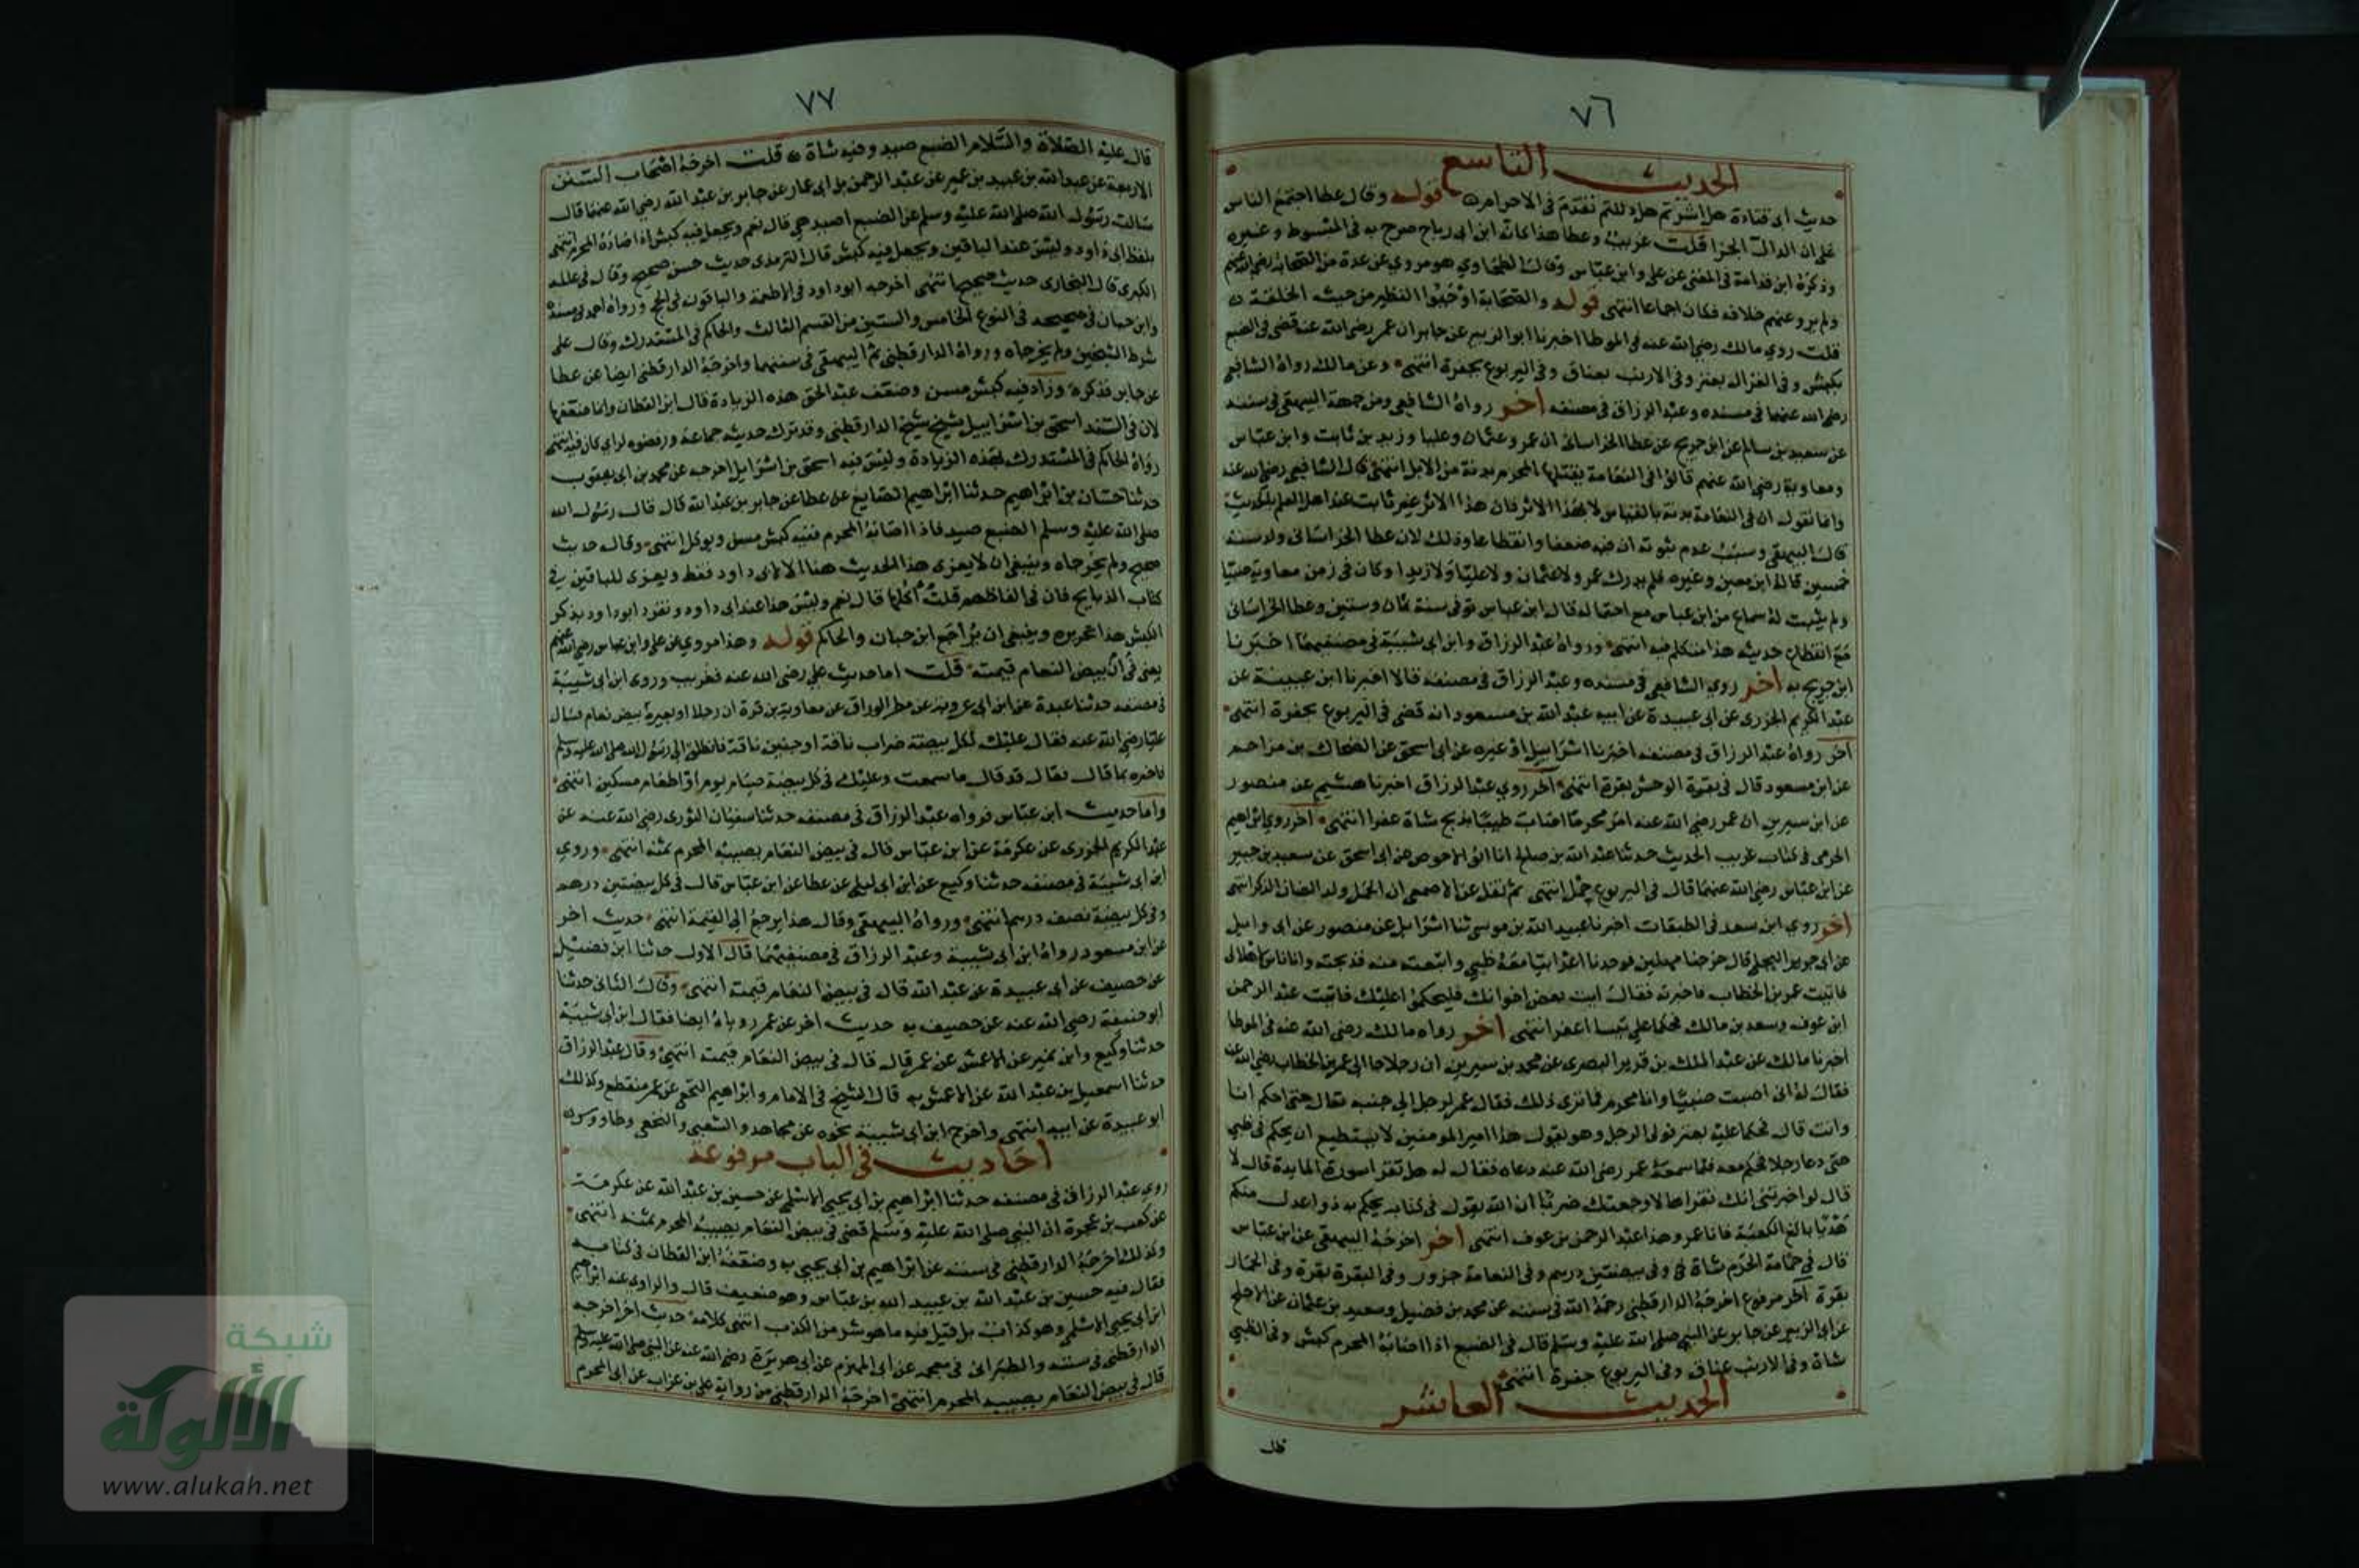 ٧٦
الحديث التاسع
حديث ابى قتادة هل اشرتم هل دللتم تقدم فى الاحرام قوله وقال عطا اجتمع الناس
على ان الدال الجزا قلت غريب وعطا هذا كانه ابن ابى رباح صرح به فى المبسوط وغيره
وذكره ابن قدامة فى المغنى عن على وابن عباس وقال الطحاوي هو مروي عن عدة من الصحابة رضى الله عنهم
ولم يرو عنهم خلافه فكان اجماعا انتهى قوله والصحابة اوجبوا النظير من حيث الخلقة
قلت روي مالك رضى الله عنه فى الموطا اخبرنا ابو الزبير عن جابر ان عمر رضى الله عنه قضى فى الضبع
بكبش وفى الغزال بعنز وفى الارنب بعناق وفى اليربوع بجفرة انتهى وعن مالك رواه الشافعى
رضى الله عنهما فى مسنده وعبد الرزاق فى مصنفه اخر رواه الشافعى ومن جهة البيهقى فى سننه
عن سعيد بن سالم عن ابن جريج عن عطا الخراسانى ان عمر وعثمان وعليا وزيد بن ثابت وابن عباس
ومعاوية رضى الله عنهم قالوا فى النعامة يقتلها المحرم بدنة من الابل انتهى قال الشافعى رضى الله عنه
وانما نقول ان فى النعامة بدنة بالقياس لا بهذا الاثر فان هذا الاثر غير ثابت عند اهل العلم بالحديث
قال البيهقى وسبب عدم ثبوته ان فيه ضعفا وانقطاعا وذلك لان عطا الخراسانى ولد سنة
خمسين قاله ابن معين وغيره فلم يدرك عمر ولا عثمان ولا عليا ولا زيدا وكان فى زمن معاوية صبيا
ولم يثبت له سماع من ابن عباس مع احتماله قال ابن عباس توفى سنة ثمان وستين وعطا الخراسانى
مع انقطاع حديثه هذا متكلم فيه انتهى ورواه عبد الرزاق وابن ابى شيبة فى مصنفيهما اخبرنا
ابن جريج به اخر روي الشافعى فى مسنده وعبد الرزاق فى مصنفه قالا اخبرنا ابن عيينة عن
عبد الكريم الجزرى عن ابى عبيدة عن ابيه عبد الله بن مسعود انه قضى فى اليربوع بجفرة انتهى
اخر رواه عبد الرزاق فى مصنفه اخبرنا اسرائيل او غيره عن ابى اسحق عن الضحاك بن مزاحم
عن ابن مسعود قال فى بقرة الوحش بقرة انتهى اخر روي عبد الرزاق اخبرنا هشيم عن منصور
عن ابن سيرين ان عمر رضى الله عنه امر محرما اصاب ظبيا بذبح شاة عفرا انتهى اخر روي ابراهيم
الحربى فى كتاب غريب الحديث حدثنا عبد الله بن صالح انا ابو الاحوص عن ابى اسحق عن سعيد بن جبير
عن ابن عباس رضى الله عنهما قال فى اليربوع حمل انتهى ثم نقل عن الاصمعى ان الحمل ولد الضان الذكر انتهى
اخر روي ابن سعد فى الطبقات اخبرنا عبيد الله بن موسى ثنا اسرائيل عن منصور عن ابى وايل
عن ابى جرير البجلى قال خرجنا مهلين فوجدنا اعرابيا معه ظبي وابتعته منه فذبحته وانا ناس اهلالى
فاتيت عمر بن الخطاب فاخبرته فقال ايت بعض اخوانك فليحكموا عليك فاتيت عبد الرحمن
ابن عوف وسعد بن مالك فحكما على تيسا اعفر انتهى اخر رواه مالك رضى الله عنه فى الموطا
اخبرنا مالك عن عبد الملك بن قرير البصرى عن محمد بن سيرين ان رجلا جا الى عمر بن الخطاب رضى الله عنه
فقال له انى اصبت ضبيا وانا محرم فما ترى ذلك فقال عمر لرجل الى جنبه تعال حتى احكم انا
وانت قال فحكما عليه بعنز فولى الرجل وهو يقول هذا امير المومنين لا يستطيع ان يحكم فى ظبي
حتى دعا رجلا فحكم معه فلما سمعه عمر رضى الله عنه دعاه فقال له هل تقرا سورة المايدة قال لا
قال لو اخبرتنى انك تقراها لاوجعتك ضربا ان الله يقول فى كتابه يحكم به ذوا عدل منكم
هديا بالغ الكعبة فانا عمر وهذا عبد الرحمن بن عوف انتهى اخر اخرجه البيهقى عن ابن عباس
قال فى حمامة الحرم شاة وفى بيضتين درهم وفى النعامة جزور وفى البقرة بقرة وفى الحمار
بقرة اخر مرفوع اخرجه الدارقطنى رحمه الله فى سننه عن محمد بن فضيل وسعيد بن عثمان عن الاجلح
عن ابى الزبير عن جابر عن النبى صلى الله عليه وسلم قال فى الضبع اذا اصابه المحرم كبش وفى الظبي
شاة وفى الارنب عناق وفى اليربوع جفرة انتهى
الحديث العاشر
قال
٧٧
قال عليه الصلاة والسلام الضبع صيد وفيه شاة قلت اخرجه اصحاب السنن
الاربعة عن عبد الله بن عبيد بن عمير عن عبد الرحمن بن ابى عمار عن جابر بن عبد الله رضى الله عنهما قال
سالت رسول الله صلى الله عليه وسلم عن الضبع اصيد هي قال نعم ويجعل فيه كبش اذا اصاده المحرم انتهى
بلفظ ابى داود وليس عند الباقين ويجعل فيه كبش قال الترمذى حديث حسن صحيح وقال فى علله
الكبرى قال البخارى حديث صحيح انتهى اخرجه ابو داود فى الاطعمة والباقون فى الحج ورواه احمد فى مسنده
وابن حبان فى صحيحه فى النوع الخامس والستين من القسم الثالث والحاكم فى المستدرك وقال على
شرط الشيخين ولم يخرجاه ورواه الدارقطنى ثم البيهقى فى سننهما واخرجه الدارقطنى ايضا عن عطا
عن جابر فذكره وزاد فيه كبش مسن وضعف عبد الحق هذه الزيادة قال ابن القطان وانما ضعفها
لان فى السند اسحق بن اسرائيل شيخ شيخ الدارقطنى وقد ترك حديثه جماعة ورفضوه لراي كان فيه انتهى
رواه الحاكم فى المستدرك بهذه الزيادة وليس فيه اسحق بن اسرائيل اخرجه عن محمد بن ابى يعقوب
حدثنا حسان بن ابراهيم حدثنا ابراهيم الصايغ عن عطا عن جابر بن عبد الله قال قال رسول الله
صلى الله عليه وسلم الضبع صيد فاذا اصابه المحرم ففيه كبش مسن ويوكل انتهى وقال حديث
صحيح ولم يخرجاه وينبغى ان لا يعزى هذا الحديث هنا الا لابى داود فقط ويعزى للباقين فى
كتاب الذبايح فان فى الفاظهم قلت اكلها قال نعم وليس هذا عند ابى داود وتفرد ابو داود بذكر
الكبش هذا تحريره وينبغى ان يراجع ابن حبان والحاكم قوله وهذا مروي عن على وابن عباس رضى الله عنهم
يعنى فى ان بيض النعام قيمته قلت اما حديث على رضى الله عنه فغريب وروى ابن ابى شيبة
فى مصنفه حدثنا عبدة عن ابن ابى عروبة عن مطر الوراق عن معاوية بن قرة ان رجلا اوطا بعيره بيض نعام فسال
عليا رضى الله عنه فقال عليك لكل بيضة ضراب ناقة او جنين ناقة فانطلق الى رسول الله صلى الله عليه وسلم
فاخبره بما قال فقال قد قال ما سمعت وعليك فى كل بيضة صيام يوم او اطعام مسكين انتهى
واما حديث ابن عباس فرواه عبد الرزاق فى مصنفه حدثنا سفيان الثورى رضى الله عنه عن
عبد الكريم الجزرى عن عكرمة عن ابن عباس قال فى بيض النعام يصيبه المحرم ثمنه انتهى وروي
ابن ابى شيبة فى مصنفه حدثنا وكيع عن ابن ابى ليلى عن عطا عن ابن عباس قال فى كل بيضتين درهم
وفى كل بيضة نصف درهم انتهى ورواه البيهقى وقال هذا يرجع الى القيمة انتهى حديث اخر
عن ابن مسعود رواه ابن ابى شيبة وعبد الرزاق فى مصنفيهما قال الاول حدثنا ابن فضيل
عن خصيف عن ابى عبيدة عن عبد الله قال فى بيض النعام قيمته انتهى وقال الثانى حدثنا
ابو حنيفة رضى الله عنه عن خصيف به حديث اخر عن عمر روياه ايضا فقال ابن ابى شيبة
حدثنا وكيع وابن نمير عن الاعمش عن عمر قال قال فى بيض النعام قيمته انتهى وقال عبد الرزاق
حدثنا اسمعيل بن عبد الله عن الاعمش به قال الشيخ فى الامام وابراهيم النخعى عن عمر منقطع وكذلك
ابو عبيدة عن ابيه انتهى واخرج ابن ابى شيبة نحوه عن مجاهد والشعبى والنخعى وطاووس
احاديث فى الباب مرفوعة
روي عبد الرزاق فى مصنفه حدثنا ابراهيم بن ابى يحيى الاسلمى عن حسين بن عبد الله عن عكرمة
عن كعب بن عجرة ان النبى صلى الله عليه وسلم قضى فى بيض النعام يصيبه المحرم بثمنه انتهى
وكذلك اخرجه الدارقطنى فى سننه عن ابراهيم بن ابى يحيى به وضعفه ابن القطان فى كتابه
فقال فيه حسين بن عبد الله بن عبيد الله بن عباس وهو ضعيف قال والراوي عنه ابراهيم
ابن ابى يحيى الاسلمى وهو كذاب بل قيل فيه ما هو شر من الكذب انتهى كلامه حديث اخر اخرجه
الدارقطنى فى سننه والطبرانى فى معجمه عن ابى المهزم عن ابى هريرة رضى الله عنه عن النبى صلى الله عليه وسلم
قال فى بيض النعام يصيبه المحرم انتهى اخرجه الدارقطنى من رواية على بن غراب عن ابى المهزم
شبكة
الألوكة
www.alukah.net